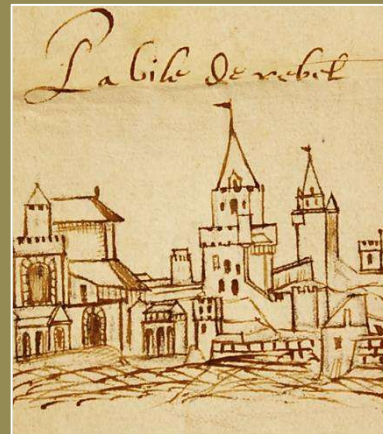 La bile de rebel